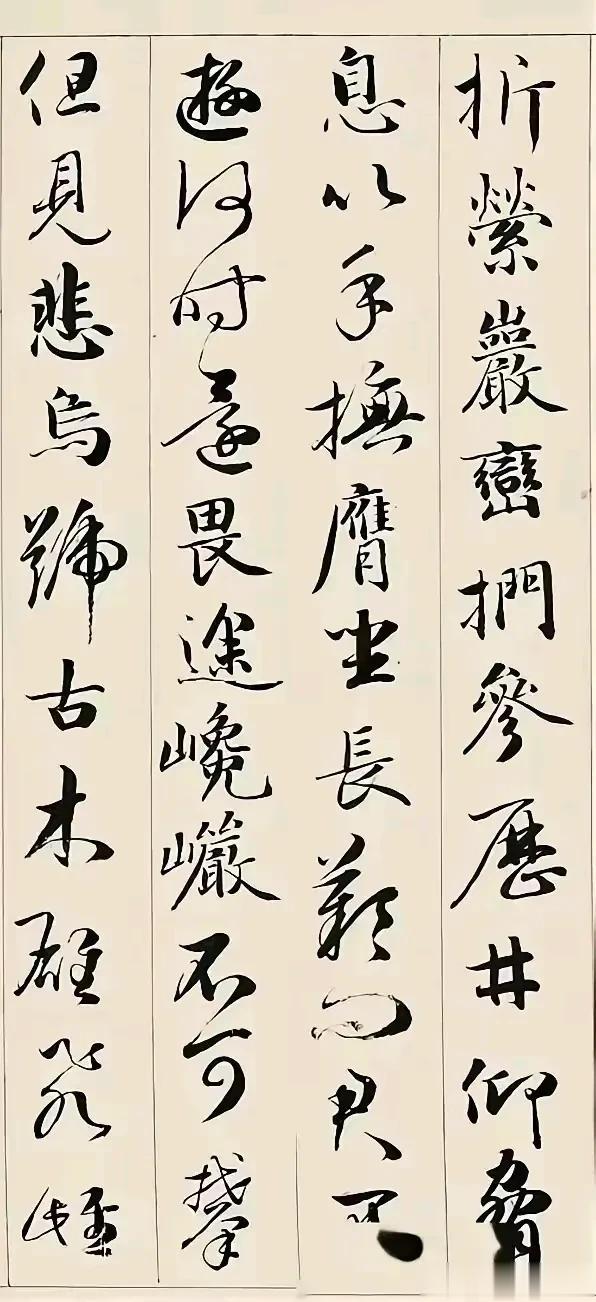 折縈巖巒捫參歷井仰脅
息以手撫膺坐長歎問君西
遊何時還畏途巉巗不可攀
但見悲鳥號古木雄飛雌